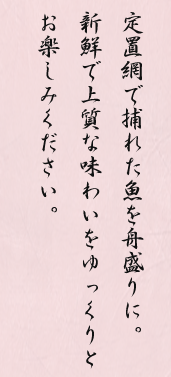 定置網で捕れた魚を舟盛りに。
新鮮で上質な味わいをゆっくりと
お楽しみください。